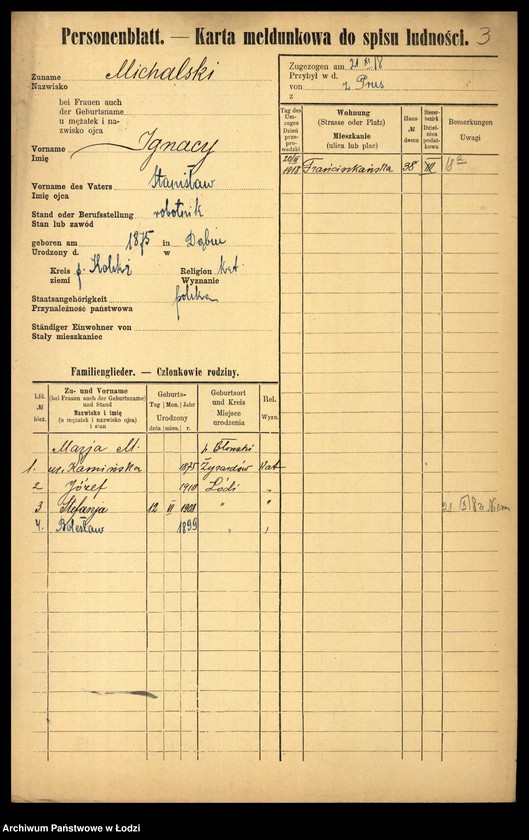 Personenblatt. — Karta meldunkowa do spisu ludności. 3
Zuname Michalski
Nazwisko
bei Frauen auch
der Geburtsname
u mężatek i na-
zwisko ojca
Vorname Ignacy
Imię
Vorname des Vaters Stanisław
Imię ojca
Stand oder Berufsstellung robotnik
Stan lub zawód
geboren am 1875 in Dąbiu
Urodzony d. w
Kreis p. Kolski Religion kat
ziemi Wyznanie
Staatsangehörigkeit polska
Przynależność państwowa
Ständiger Einwohner von
Stały mieszkaniec
Zugezogen am 21 XI 18
Przybył w d.
von z Prus
z
Tag des Um-zuges Dzień prze-prowadzki
Wohnung (Strasse oder Platz) Mieszkanie (ulica lub plac)
Haus- № domu
Steuer-bezirk Dzielnica podat-kowa
Bemerkungen Uwagi
1918 Franciszkańska 38 III 18a
Familienglieder. — Członkowie rodziny.
Lfd. № bież.
Zu- und Vorname (bei Frauen auch der Geburtsname) und Stand Nazwisko i imię (u mężatek i nazwisko ojca) i stan
Geburts- Tag Mon. Jahr Urodzony dnia mies. r.
Geburtsort und Kreis Miejsce urodzenia
Rel. Wyzn.
Marja M. p. Błoński
1. ur. Kamińska 1875 Żyrardów Kat
2 Józef 1910 Łódź "
3 Stefanja 12 VI 1908 " "
4. Bolesław 1899 " "
Archiwum Państwowe w Łodzi